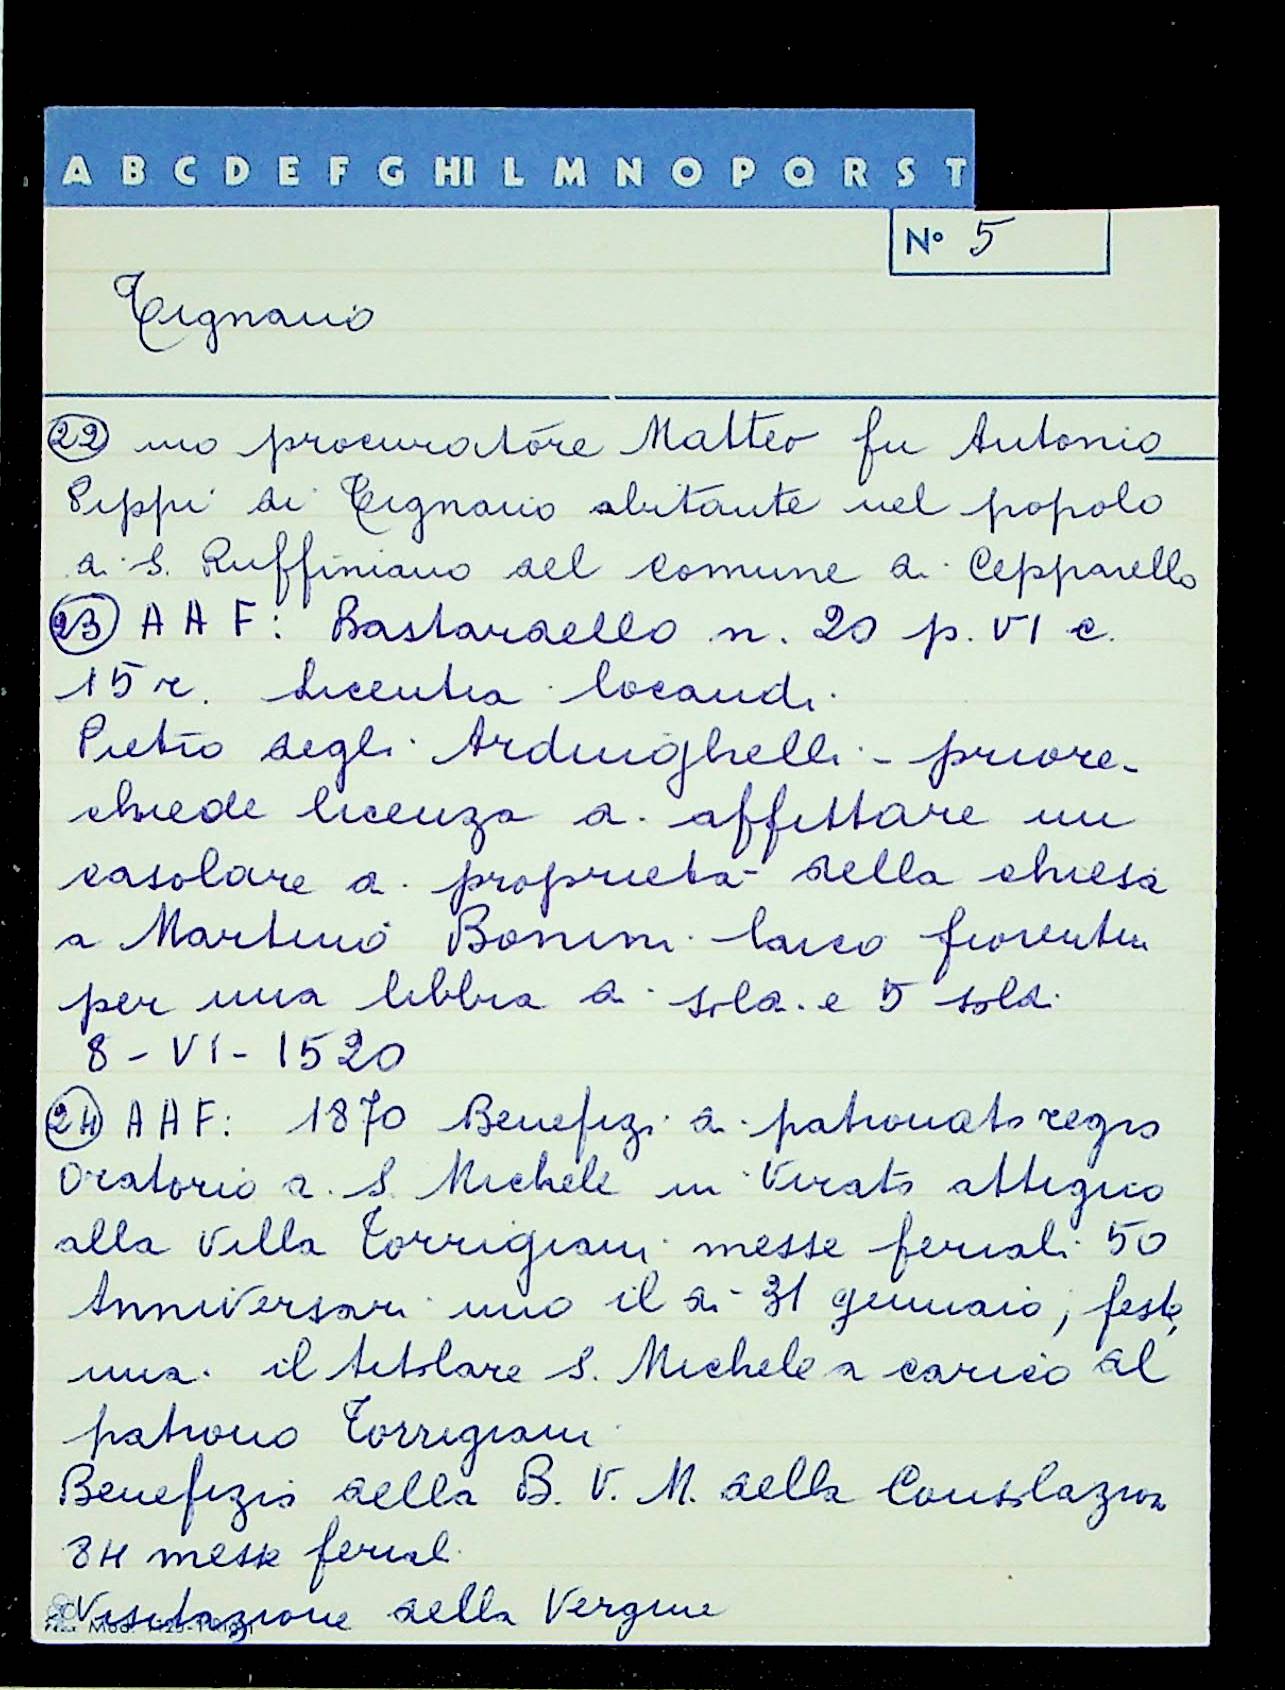 A B C D E F G HI L M N O P Q R S T
N° 5
Tignano
22 suo procuratore Matteo fu Antonio
Pippi di Tignano abitante nel popolo
di S. Ruffiniano del comune di Cepparello
23 A A F: Bastardello n. 20 p. VI c.
15 r. Licentia locandi.
Pietro degli Ardinghelli - priore -
chiede licenza di affittare un
casolare di proprietà della chiesa
a Martino Bonini laico fiorentin
per una libbra di sol di e 5 soldi
8 - VI - 1520
24 A A F: 1870 Benefizi di patronato regio
Oratorio di S. Michele in Virato attiguo
alla Villa Torrigiani messe feriali 50
Anniversari uno il di 31 gennaio; feste,
una. il titolare S. Michele a carico al
patrono Torrigiani
Benefizio della B. V. M. della Consolazion
84 messe feriali
Visitazione della Vergine